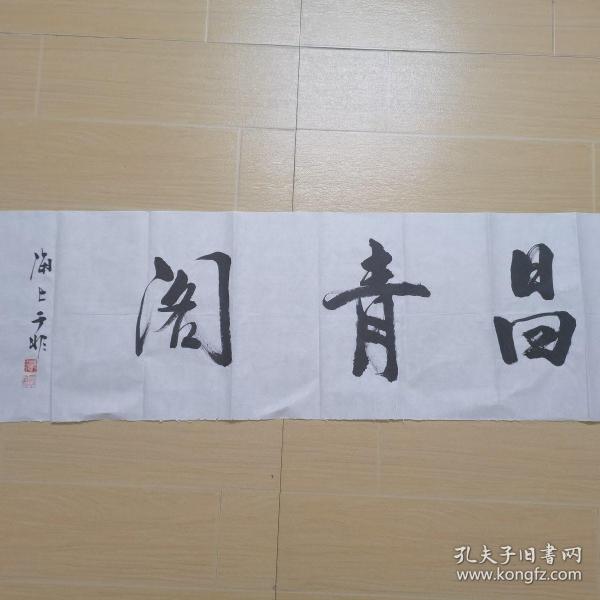 昌青阁
海上于非
孔夫子旧書网
www.kongfz.com